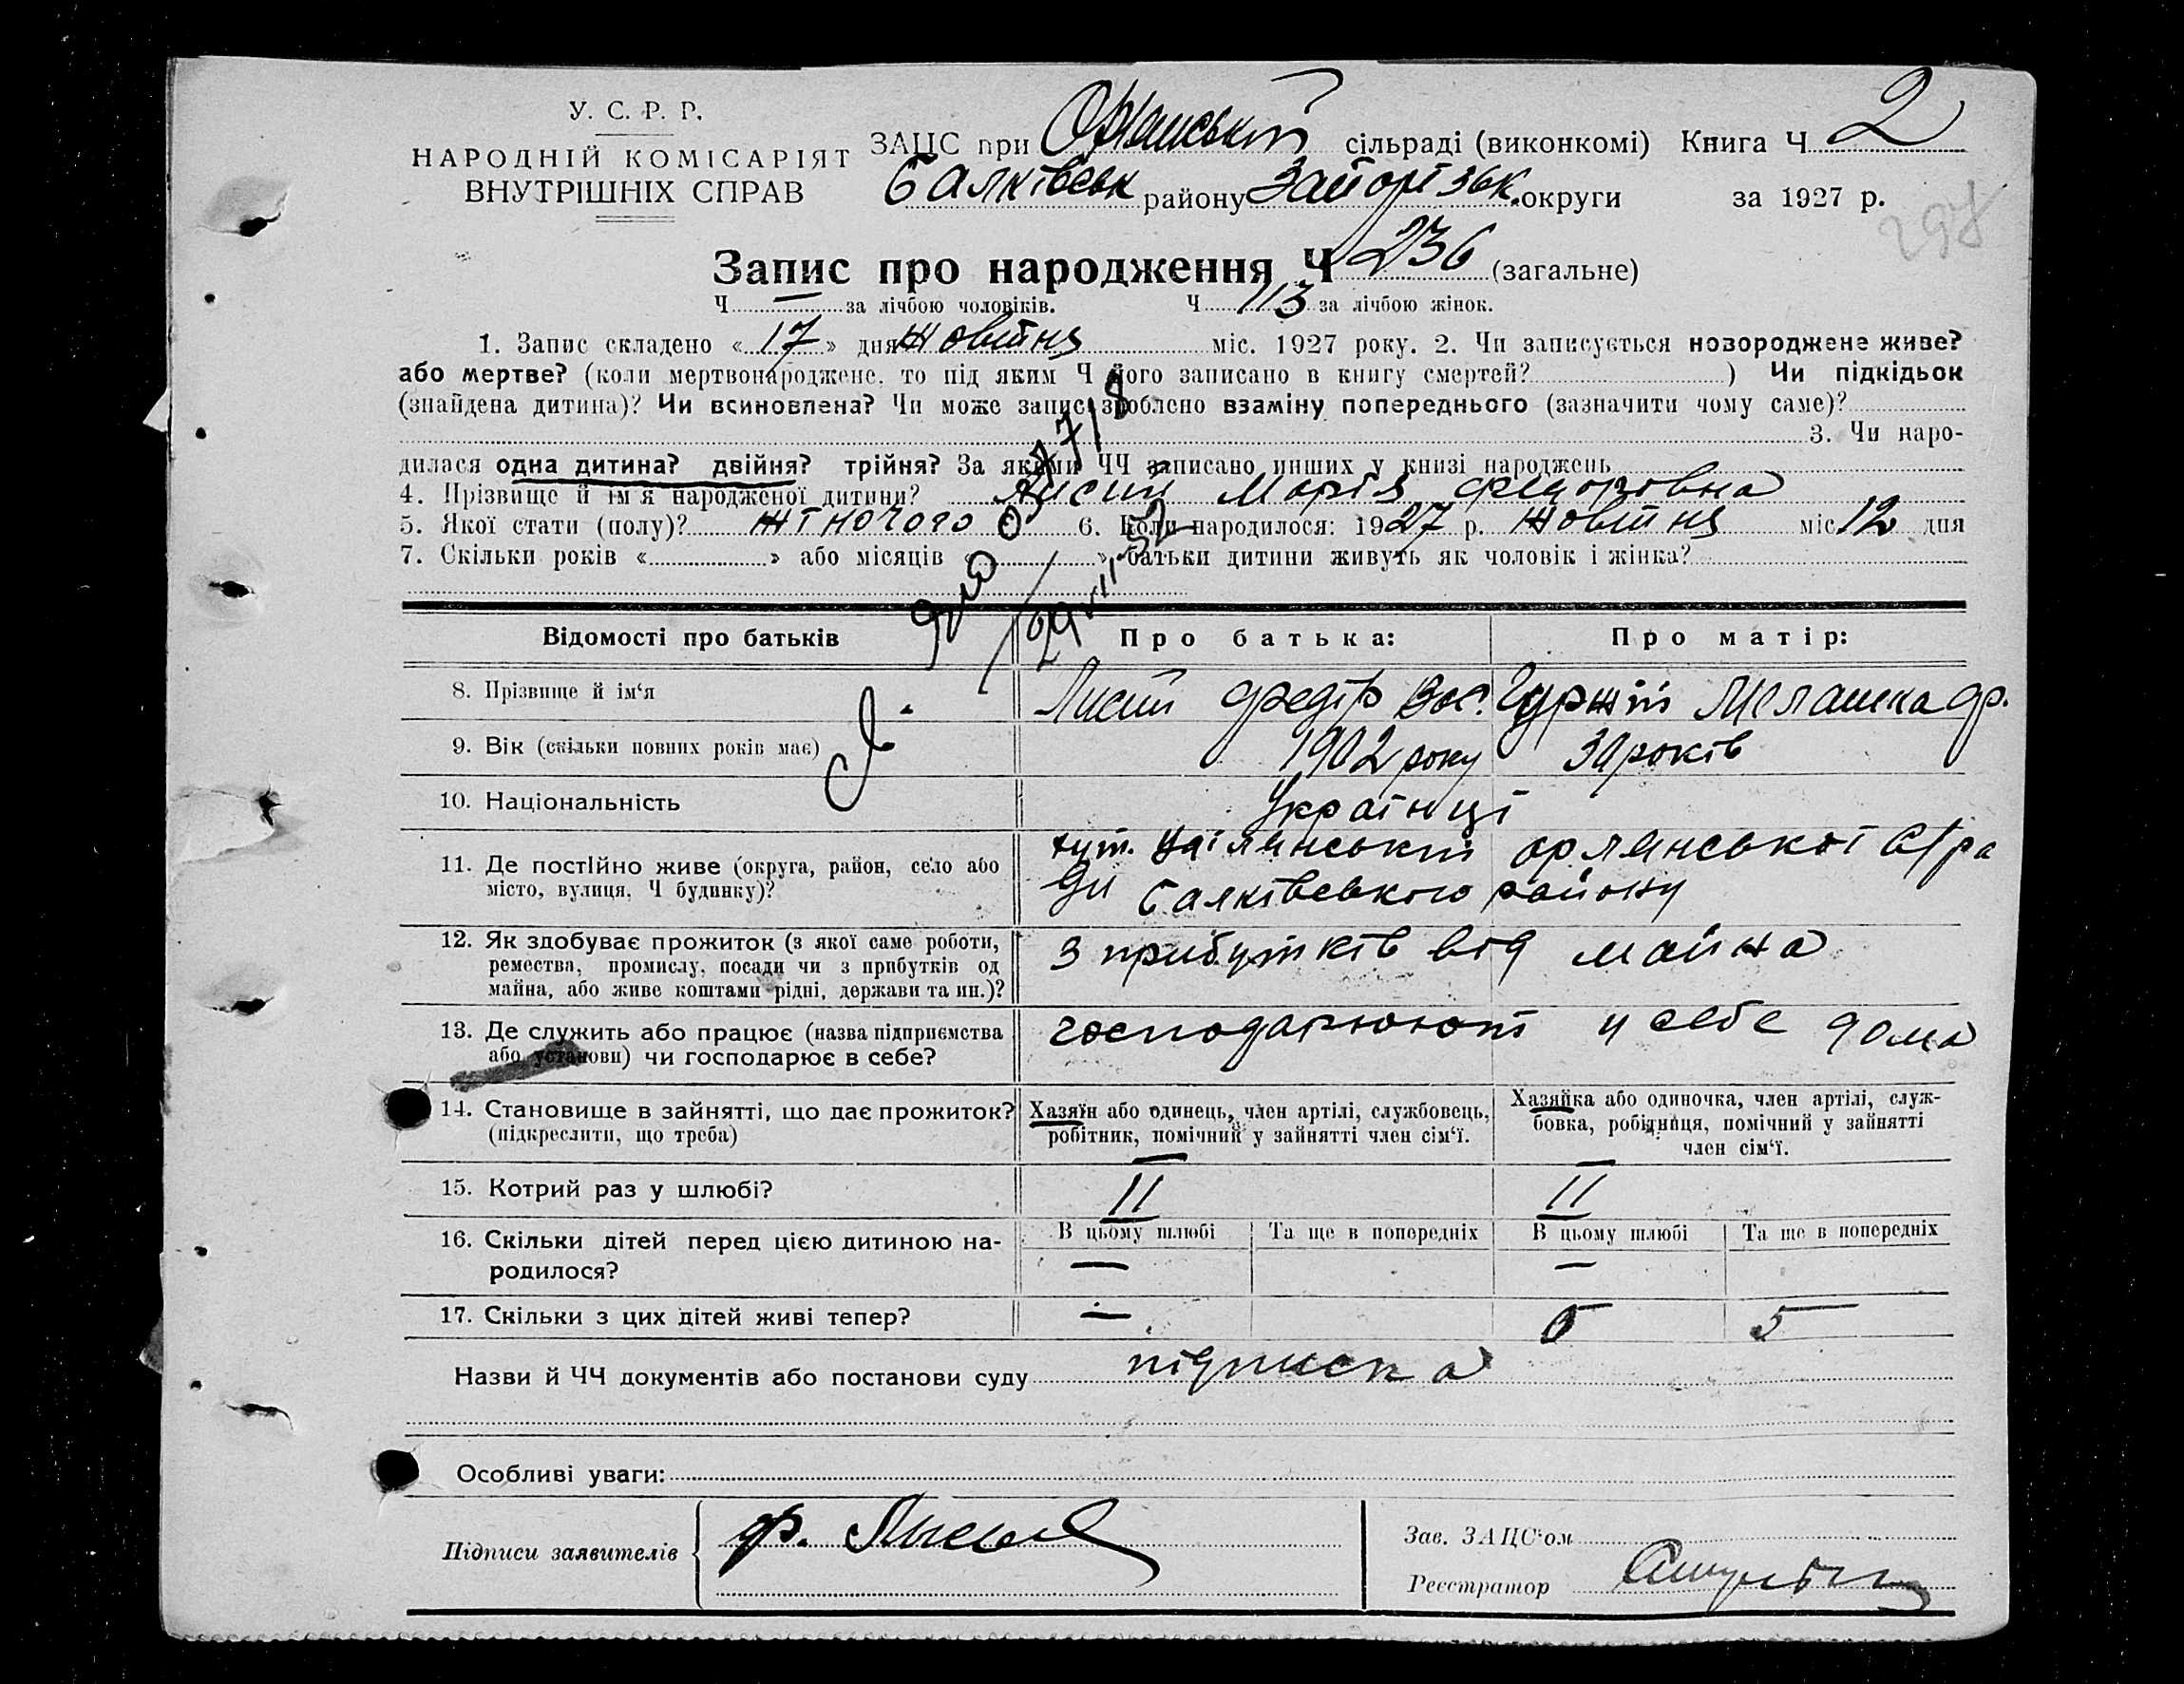 У. С. Р. Р.
НАРОДНІЙ КОМІСАРІЯТ
ВНУТРІШНІХ СПРАВ
ЗАЦС при сільраді (виконкомі) Книга Ч 2
Балківськ району Запорізьк. округи за 1927 р.
297
Запис про народження Ч 236 (загальне)
Ч — за лічбою чоловіків. Ч 113 за лічбою жінок.
1. Запис складено « 17 » дня жовтня міс. 1927 року. 2. Чи записується новороджене живе?
або мертве? (коли мертвонароджене, то під яким Ч його записано в книгу смертей? ) Чи підкідьок
(знайдена дитина)? Чи всиновлена? Чи може запис зроблено взаміну попереднього (зазначити чому саме)?
3. Чи наро-
дилася одна дитина? двійня? трійня? За якими ЧЧ записано инших у книзі народжень
4. Прізвище й ім'я народженої дитини? Лисий Марія Федорівна
5. Якої стати (полу)? жіночого 6. Коли народилося: 1927 р. жовтня міс 12 дня
7. Скільки років « » або місяців « » батьки дитини живуть як чоловік і жінка?
29 XII-52
Відомості про батьків Про батька: Про матір:
8. Прізвище й ім'я Лисий Федір Вас. Гуржій Мелашка Ф.
9. Вік (скільки повних років має) 1902 року 30 років
10. Національність Українці
11. Де постійно живе (округа, район, село або
місто, вулиця, Ч будинку)?
хут. орлянської с/ра
ди Балківського району
12. Як здобуває прожиток (з якої саме роботи,
ремества, промислу, посади чи з прибутків од
майна, або живе коштами рідні, держави та ин.)?
з прибутків від майна
13. Де служить або працює (назва підприємства
або установи) чи господарює в себе?
господарюють у себе дома
14. Становище в зайнятті, що дає прожиток?
(підкреслити, що треба)
Хазяїн або одинець, член артілі, службовець,
робітник, помічний у зайнятті член сім'ї.
Хазяйка або одиночка, член артілі, служ-
бовка, робітниця, помічний у зайнятті
член сім'ї.
15. Котрий раз у шлюбі? II II
16. Скільки дітей перед цією дитиною на-
родилося?
В цьому шлюбі Та ще в попередніх В цьому шлюбі Та ще в попередніх
— —
17. Скільки з цих дітей живі тепер? — 5
Назви й ЧЧ документів або постанови суду підписка
Особливі уваги:
Підписи заявителів Ф. Лысый
Зав. ЗАЦС'ом
Реєстратор